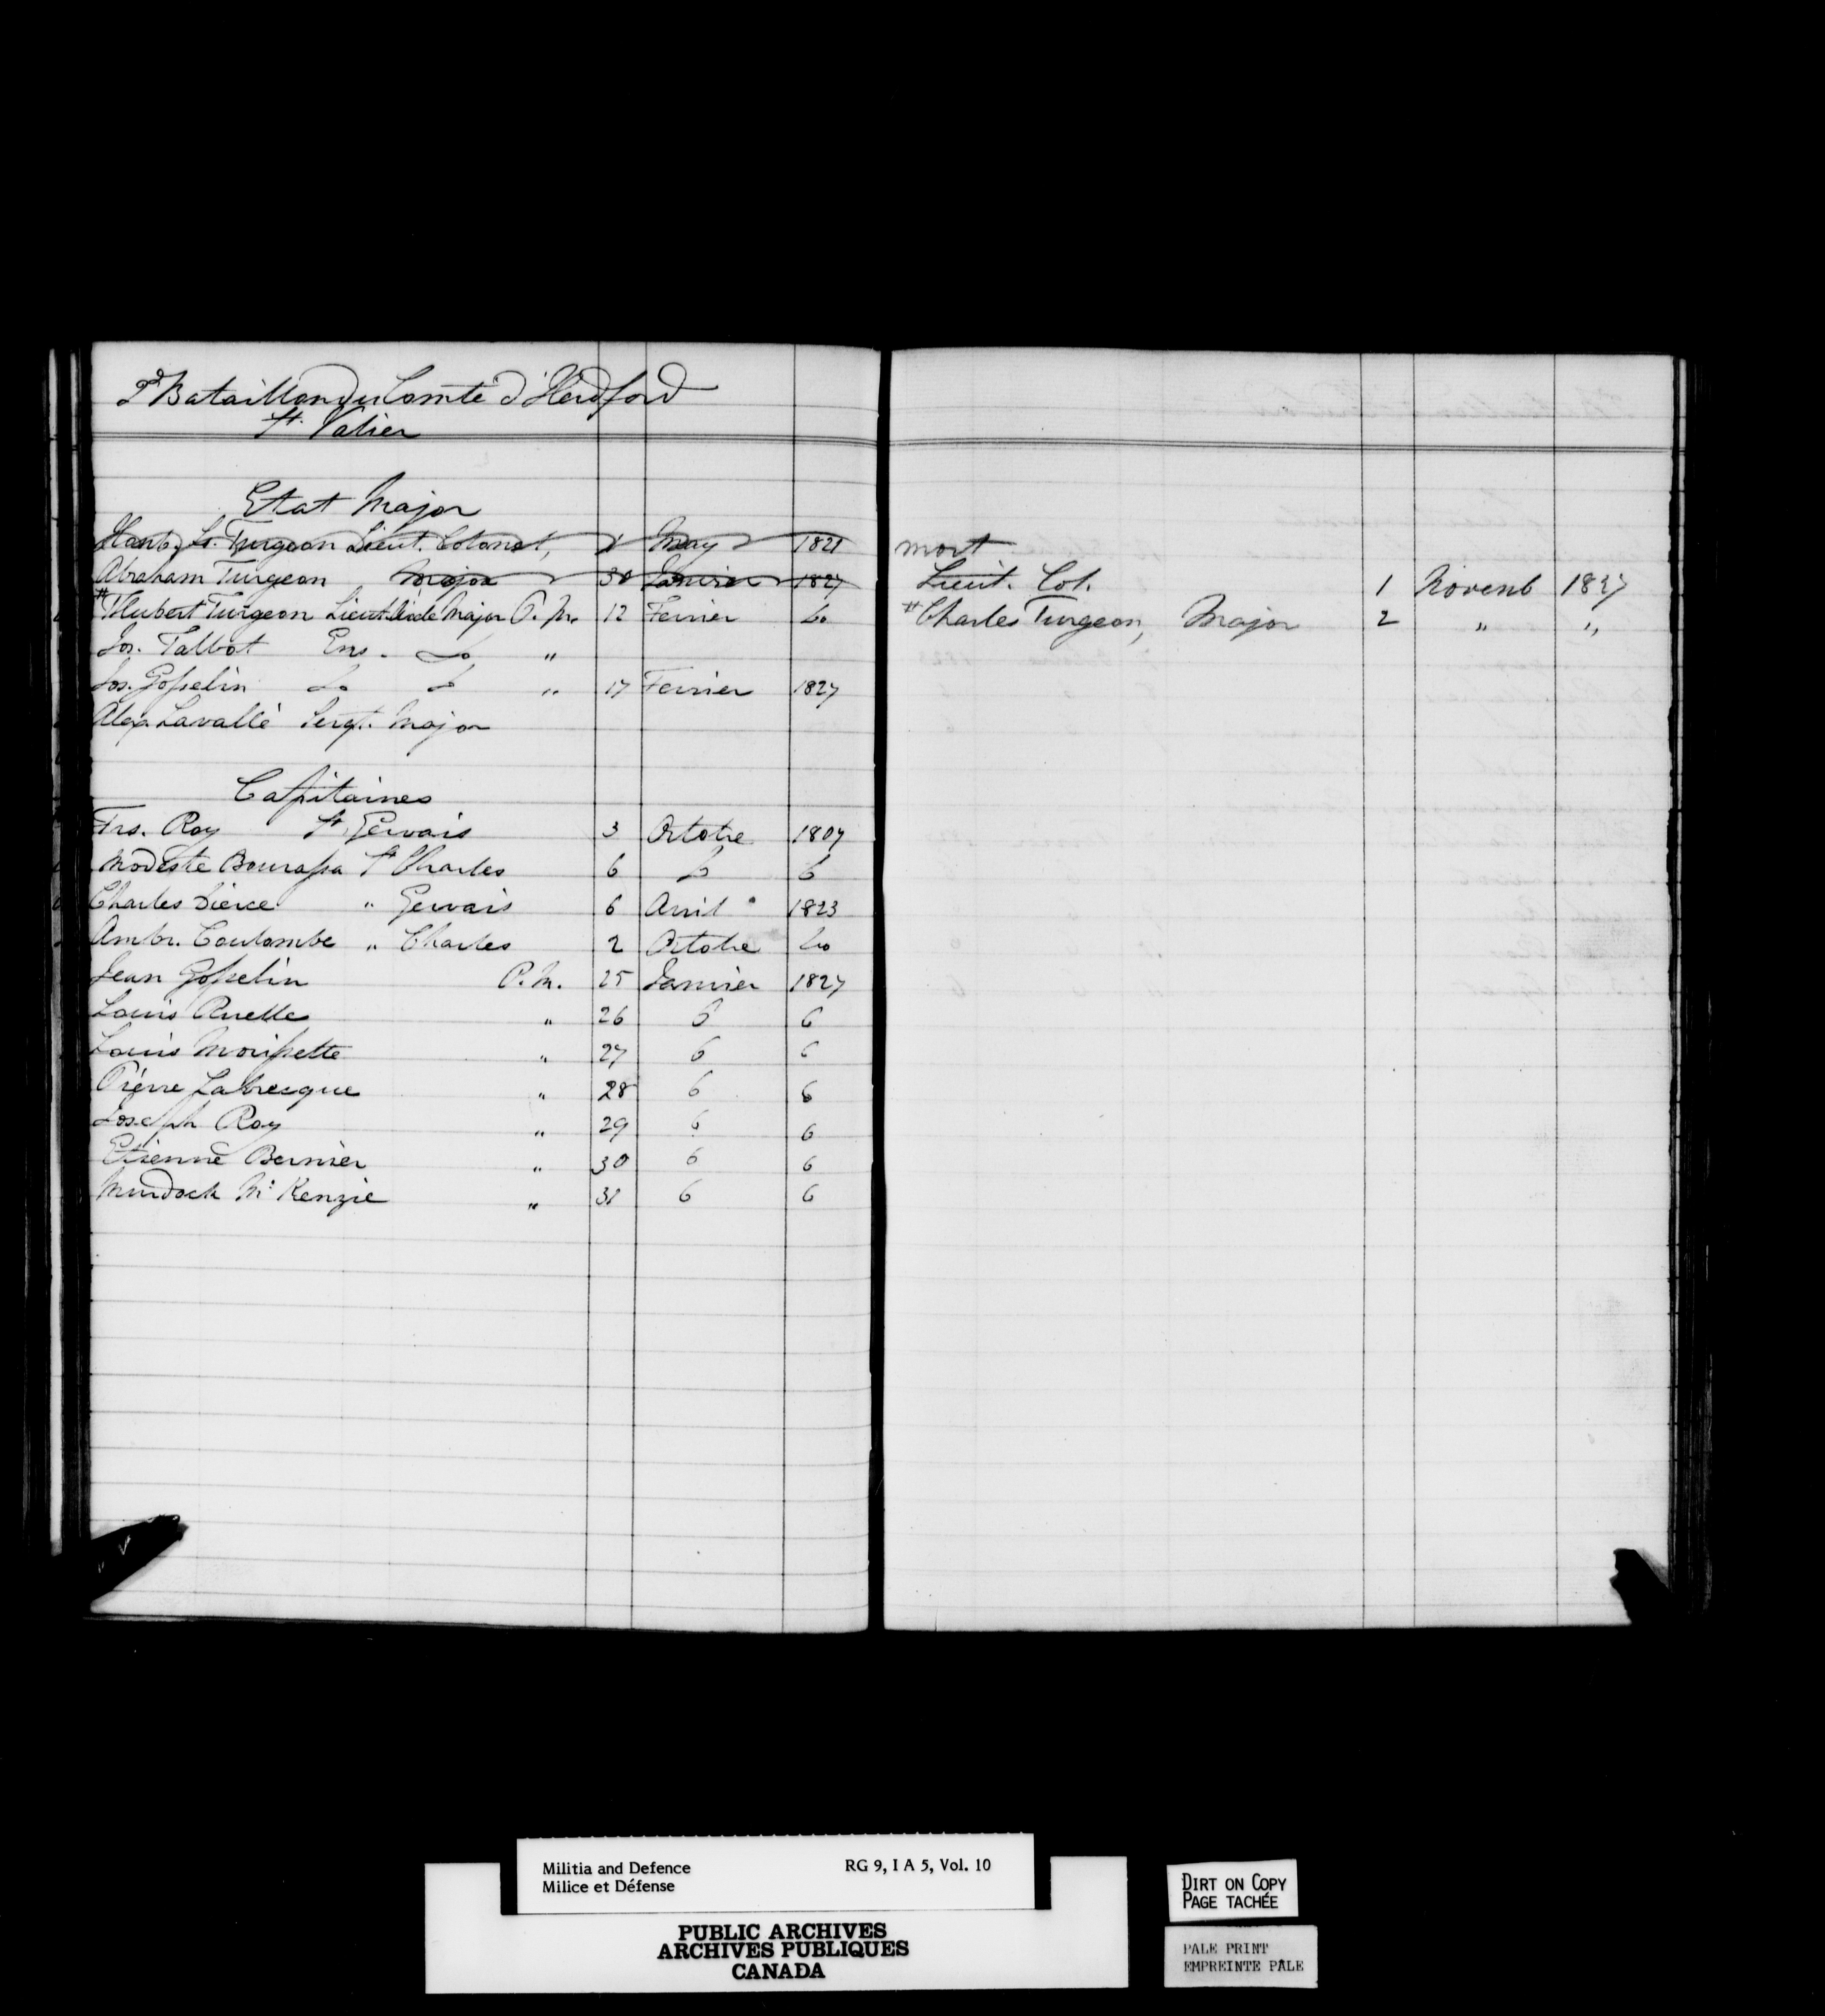 2d Bataillon du Comté d'Herdford
St. Valier
Etat Major
Honble. Ls. Turgeon Lieut. Colonel, 1 May 1821 mort
Abraham Turgeon Major 30 Janvier 1827 Lieut. Col. 1 Novemb 1827
# Hubert Turgeon Lieut. Aide Major P. M. 12 Fevrier do # Charles Turgeon, Major 2 " "
Jos. Talbot Ens. do "
Jos. Gosselin do do " 17 Fevrier 1827
Alex. Lavallé Sergt. Major
Capitaines
Frs. Roy St. Gervais 3 Octobre 1807
Modeste Bourassa St Charles 6 do do
Charles " Gervais 6 Avril 1823
Ambr. Coulombe " Charles 2 Octobre do
Jean Gosselin P. M. 25 Janvier 1827
Louis Ruelle " 26 do do
Louis Morissette " 27 do do
Piérre Labrecque " 28 do do
Joseph Roy " 29 do do
Etienne Bernier " 30 do do
Murdock Mc Kenzie " 31 do do
Militia and Defence RG 9, I A 5, Vol. 10
Milice et Défense
PUBLIC ARCHIVES
ARCHIVES PUBLIQUES
CANADA
DIRT ON COPY
PAGE TACHÉE
PALE PRINT
EMPREINTE PÂLE